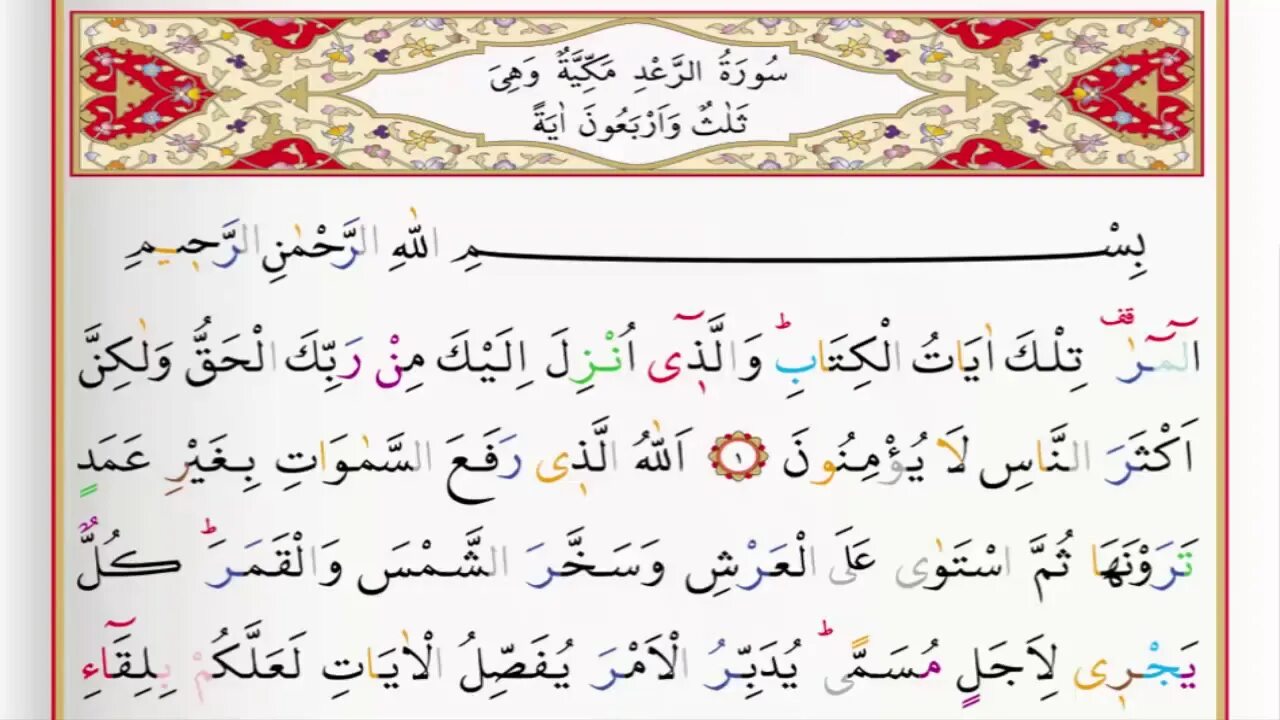 سُورَةُ الرَّعْدِ مَكِّيَّةٌ وَهِىَ
ثَلٰثٌ وَاَرْبَعُونَ اٰيَةً
بِسْمِ اللّٰهِ الرَّحْمٰنِ الرَّحٖيمِ
الٓمٓرٰ ࣞ تِلْكَ اٰيَاتُ الْكِتَابِؕ وَالَّذٖٓى اُنْزِلَ اِلَيْكَ مِنْ رَبِّكَ الْحَقُّ وَلٰكِنَّ
اَكْثَرَ النَّاسِ لَا يُؤْمِنُونَ ﴿١﴾ اَللّٰهُ الَّذٖى رَفَعَ السَّمٰوَاتِ بِغَيْرِ عَمَدٍ
تَرَوْنَهَا ثُمَّ اسْتَوٰى عَلَى الْعَرْشِ وَسَخَّرَ الشَّمْسَ وَالْقَمَرَؕ كُلٌّ
يَجْرٖى لِاَجَلٍ مُسَمًّىؕ يُدَبِّرُ الْاَمْرَ يُفَصِّلُ الْاٰيَاتِ لَعَلَّكُمْ بِلِقَٓاءِ